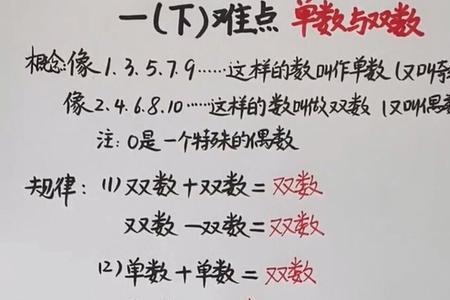 一(下)难点 单数与双数
概念:像1.3.5.7.9……这样的数叫作单数(又叫奇
像2.4.6.8.10……这样的数叫做双数(又叫偶数
注:0是一个特殊的偶数
规律:(1)双数+双数=双数
双数-双数=双数
(2)单数+单数=双数